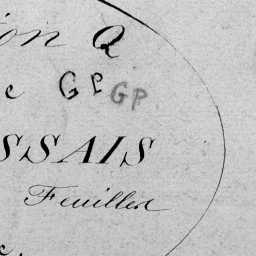 on Q
e GP GP
SSAIS
Feuilles